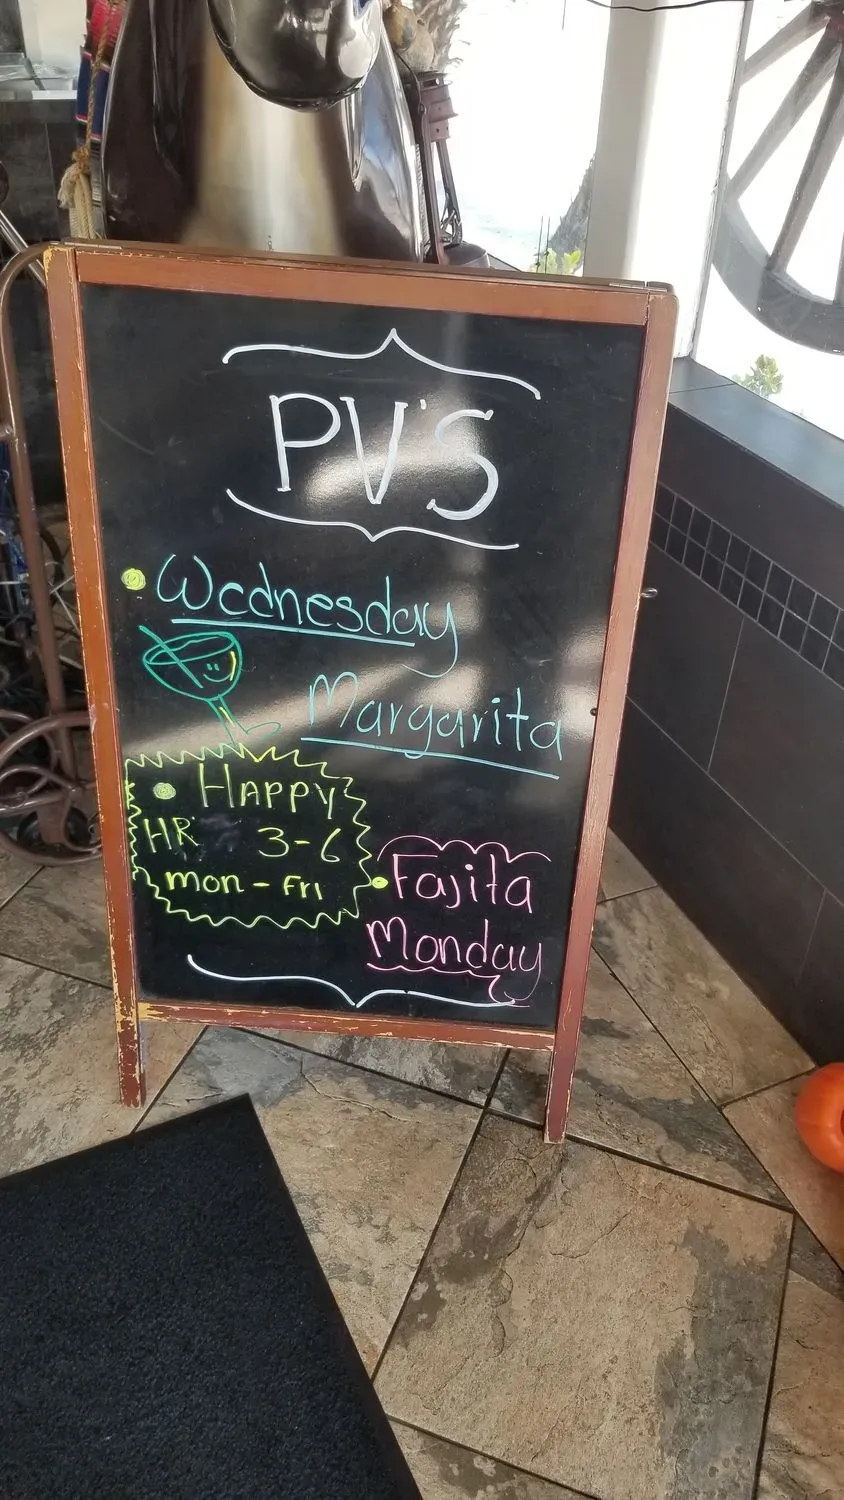 PV'S
Wednesday
Margarita
HAPPY
HR 3-6
mon-Fri
Fajita
Monday